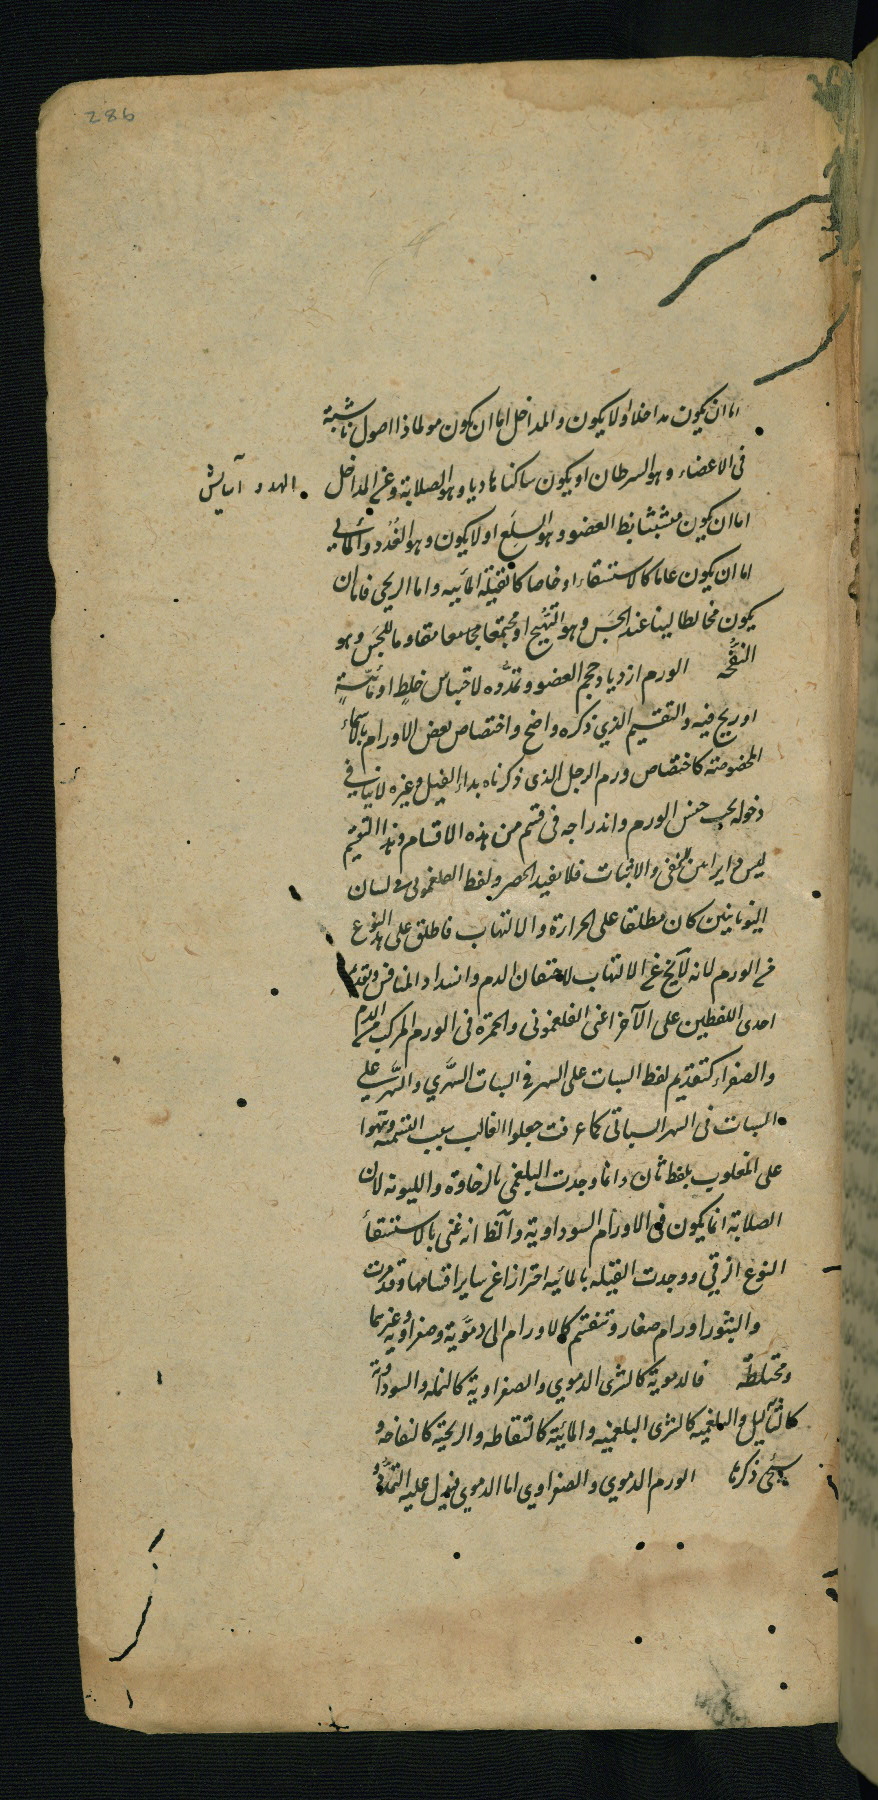 286
اما ان يكون مداخلا او لا يكون والمداخل اما ان يكون مولما ذا اصول ناشبة
فى الاعضاء وهو السرطان او يكون ساكنا هاديا وهو الصلابة وغير المداخل
الهدو آسايش
اما ان يكون متشبثا بظ العضو وهو السلع او لا يكون وهو الغدد والمائي
اما ان يكون عاما كالاستسقاء او خاصا كالقيلة المائيه واما الريحي فاما ان
يكون مخالطا لينا عند الجس وهو التهيج او مجتمعا مقاوما للجس وهو
النفخه الورم ازدياد حجم العضو وتمدده لاحتباس خلط او مائية
او ريح فيه والتقسيم الذي ذكره واضح واختصاص بعض الاورام باسماء
المخصوصة كاختصاص ورم الرجل الذى ذكرناه بداء الفيل وغيره لا ينافي
دخوله تحت جنس الورم واندراجه فى قسم من هذه الاقسام وهذا التقسيم
ليس دايرا بين النفى والاثبات فلا يفيد الحصر ولفظ الفلغمونى فى لسان
اليونانيين كان مطلقا على الحرارة والالتهاب فاطلق على هذا النوع
من الورم لانه لا يخ عن الالتهاب لاحتقان الدم وانسداد المنافس وتقديم
احدى اللفظين على الآخر اعنى الفلغمونى والحمرة فى الورم المركب من الدم
والصفراء كتقديم لفظ السبات على السهر فى السبات السهري والسهر على
السبات فى السهر السباتى كما عرفت جعلوا الغالب سبب التسمية ونبهوا
على المغلوب بلفظ ثان وانما وجدت البلغمى بالرخاوة والليونه لان
الصلابة انما يكون فى الاورام السوداوية والظ انه عنى بالاستسقاء
النوع الزقي ووجدت القيله بالمائيه احترازا عن ساير اقسامها وقد مرت
والبثور اورام صغار وتنقسم كالاورام الى دموية وصفراوية وغيرهما
ومختلطة فالدموية كالشرى الدموي والصفراوية كالنمله والسوداوية
كالثآليل والبلغميه كالشرى البلغميه والمائية كالنفاطه والريحية كالنفاخه و
سيجئ ذكرها الورم الدموي والصفراوي اما الدموي فيدل عليه التمدد و